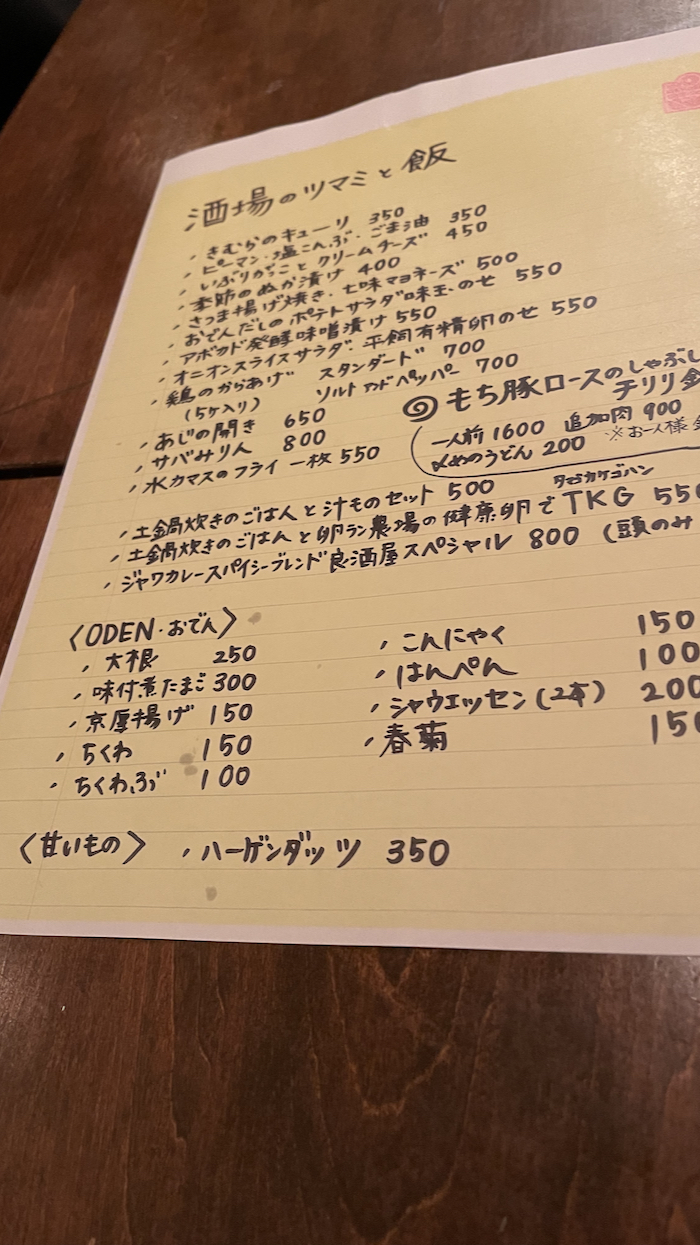 酒場のツマミと飯
・きむらのキューリ 350
・ピーマン・塩こんぶ・ごま油 350
・いぶりがっことクリームチーズ 450
・季節のぬか漬け 400
・さつま揚げ焼き・七味マヨネーズ 500
・おでんだしのポテトサラダ味玉のせ 550
・アボカド発酵味噌漬け 550
・オニオンスライスサラダ・平飼有精卵のせ 550
・鶏のからあげ スタンダード 700
(5ケ入り) ソルトアンドペッパー 700
・あじの開き 650
・サバみりん 800
・水カマスのフライ 一枚 550
もち豚ロースのしゃぶし
チリリ
一人前 1600 追加肉 900
〆めのうどん 200 ※お一人様
・土鍋炊きのごはんと汁ものセット 500
タマゴカケゴハン
・土鍋炊きのごはんと卵ラン農場の健康卵でTKG 550
・ジャワカレースパイシーブレンド良酒屋スペシャル 800 (頭のみ
〈ODEN・おでん〉
・大根 250
・味付煮たまご 300
・京厚揚げ 150
・ちくわ 150
・ちくわぶ 100
・こんにゃく 150
・はんぺん 100
・シャウエッセン(2本) 200
・春菊 150
〈甘いもの〉 ・ハーゲンダッツ 350